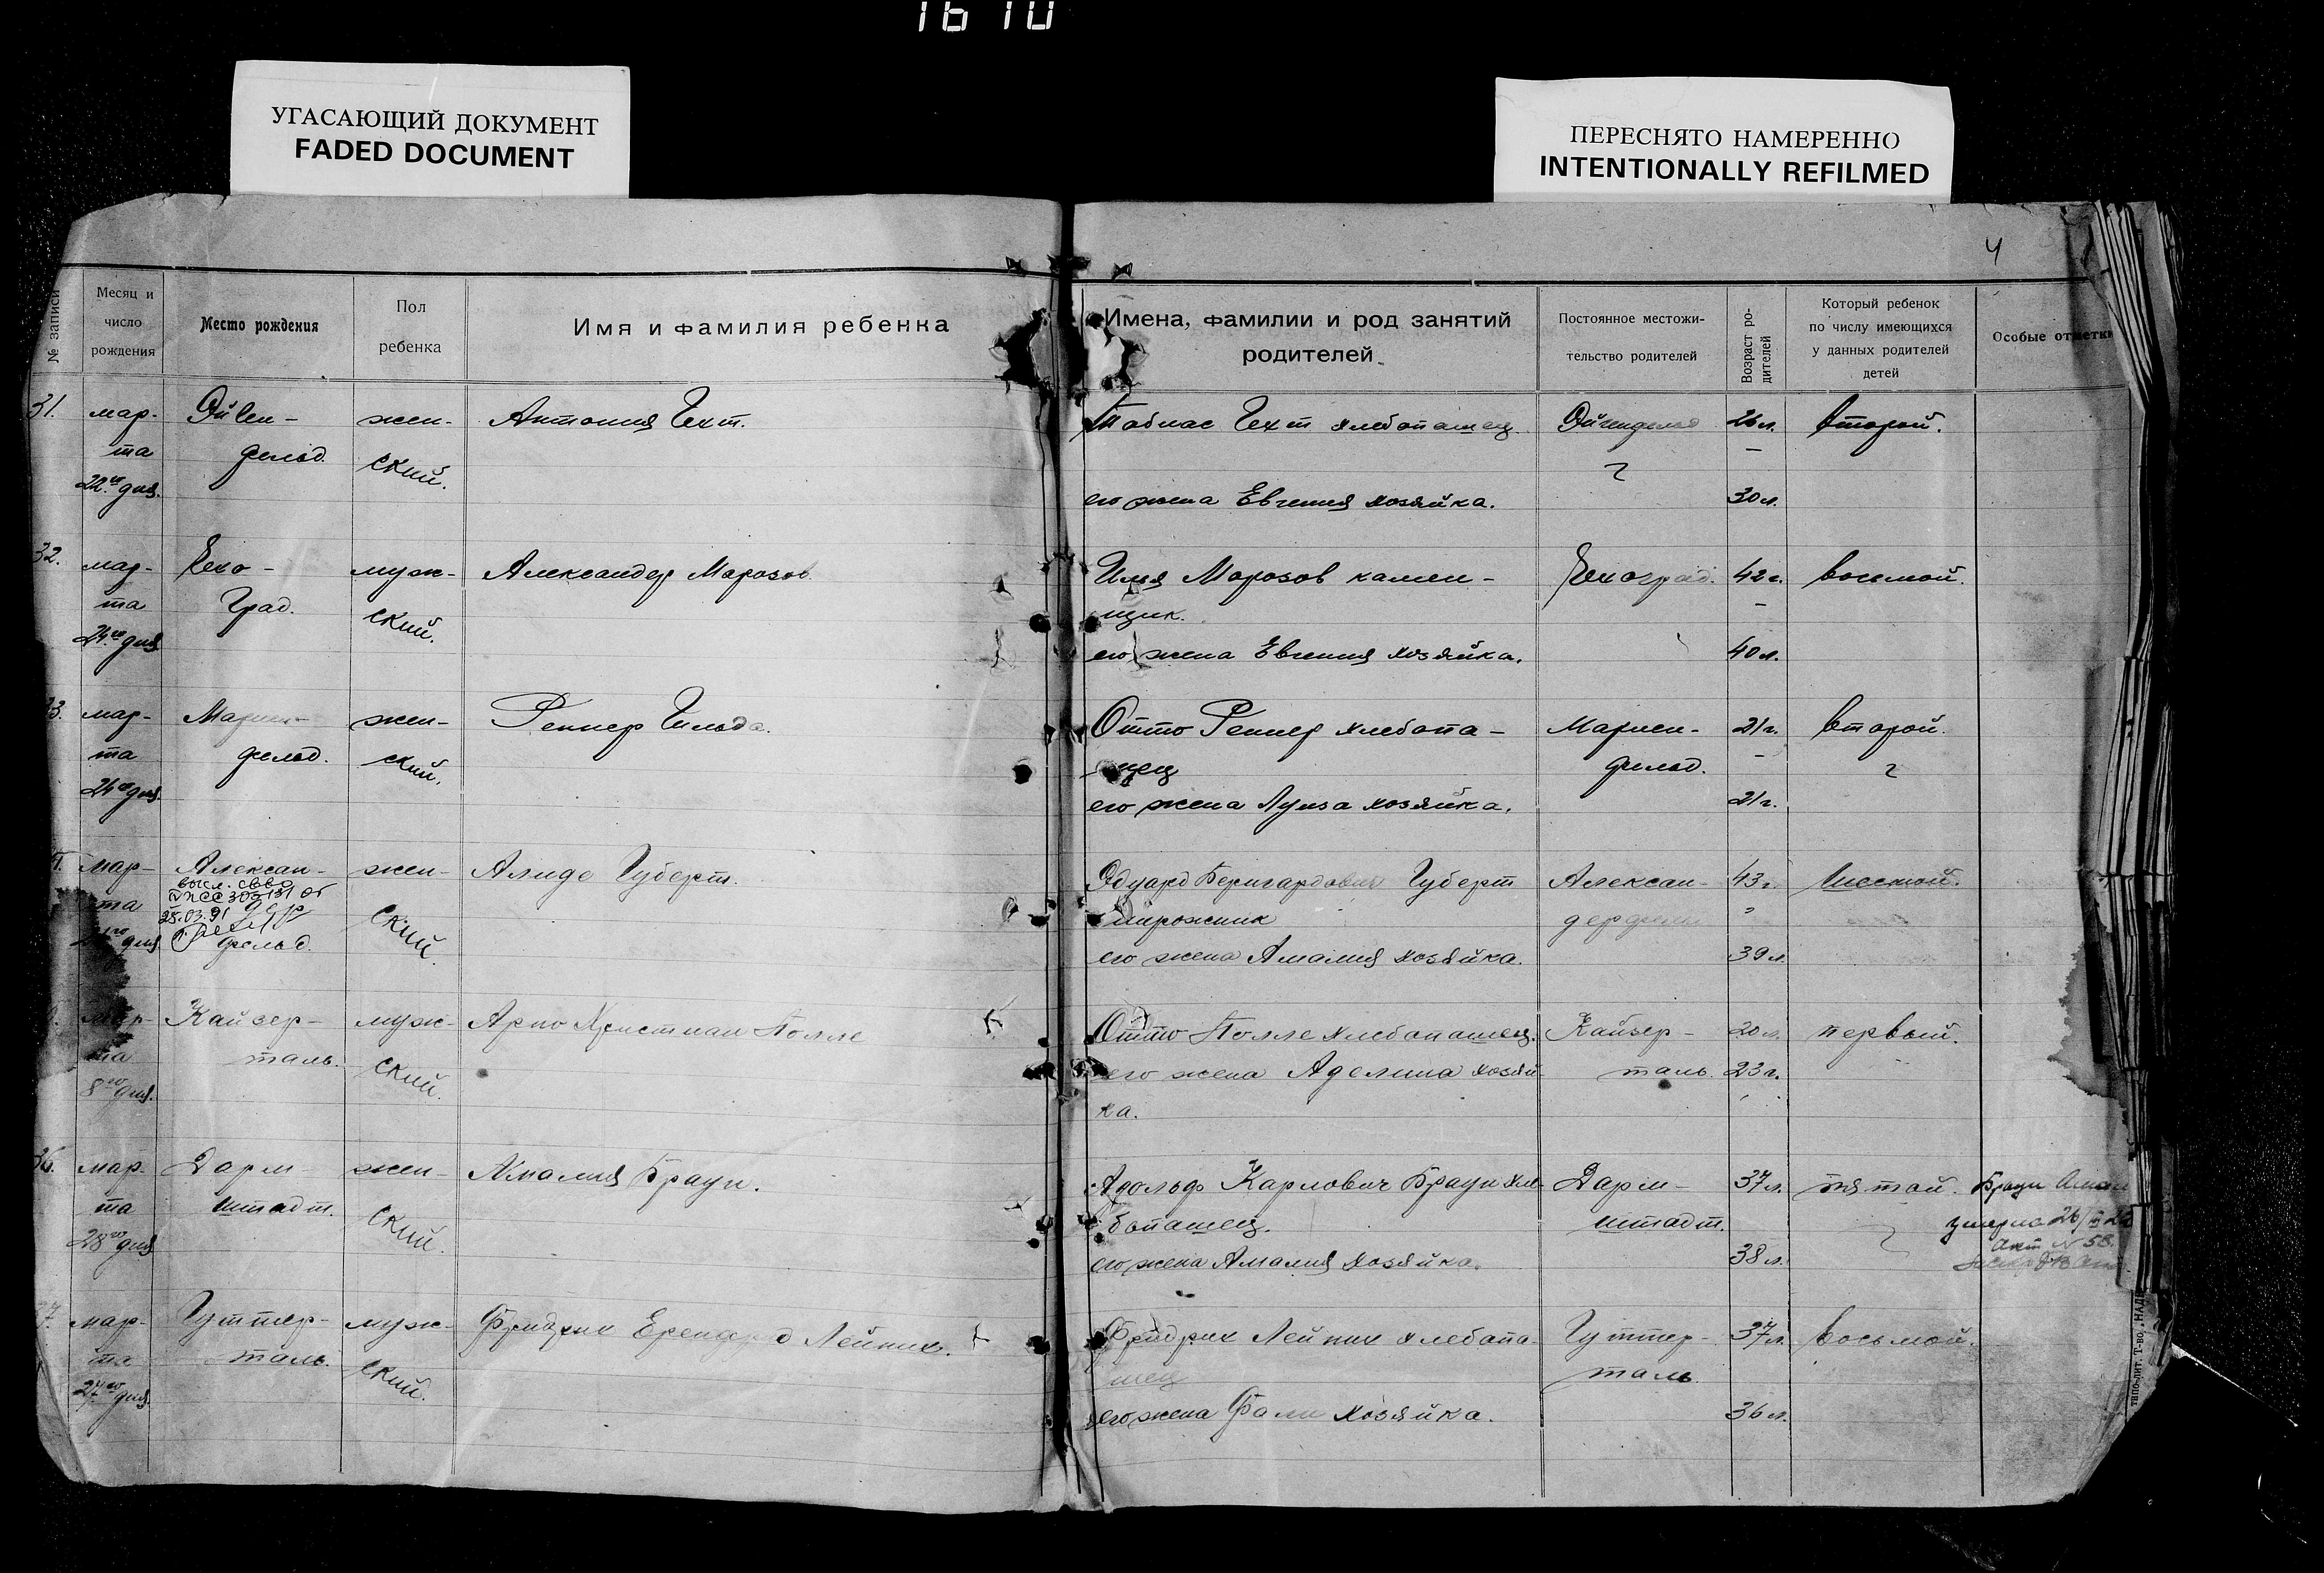 16 10
УГАСАЮЩИЙ ДОКУМЕНТ
FADED DOCUMENT
ПЕРЕСНЯТО НАМЕРЕННО
INTENTIONALLY REFILMED
4
№ записи
Месяц и
число
рождения
Место рождения
Пол
ребенка
Имя и фамилия ребенка
Имена, фамилии и род занятий
родителей
Постоянное местожи-
тельство родителей
Возраст ро-
дителей
Который ребенок
по числу имеющихся
у данных родителей
детей
Особые отметки
31.
мар-
та
22го дня.
Ойген-
фельд.
жен-
ский.
Антония Гехт.
Тобиас Гехт хлебопашец
его жена Евгения хозяйка.
Ойгенфельд
26 л.
30 л.
второй.
32.
мар-
та
24го дня
град.
муж-
ский.
Александер Морозов.
Илья Морозов камен-
щик.
его жена Евгения хозяйка.
42 г.
40 л.
восьмой.
мар-
та
24го дня.
Мариен-
фельд.
жен-
ский.
Реннер Гильда.
Отто Реннер хлебопа-
шец
его жена Луиза хозяйка.
Мариен-
фельд.
21 г.
21 г.
второй.
мар-
та
дня
Алексан-
25.03.91
фельд.
жен-
ский.
Алиде Губерт.
Эдуард Бернгардович Губерт
его жена Амалия хозяйка.
Алексан-
дерфельд
43 г.
39 л.
шестой.
мар-
та
8го дня.
Кайзер-
таль.
муж-
ский.
Арно Христиан Полле
Отто Полле хлебопашец.
его жена Аделина хозяй-
ка.
Кайзер-
таль.
20 л.
23 г.
первый.
36.
мар-
та
28го дня
Дарм-
штадт.
жен-
ский.
Амалия Браун.
Адольф Карлович Браун хле-
бопашец.
его жена Амалия хозяйка.
Дарм-
штадт.
37 л.
38 л.
пятой.
Браун
умерла
акт № 58.
мар-
та
27го дня.
Гуттер-
таль.
муж-
ский.
Фридрих Лейних.
Фридрих Лейних хлебопа-
шец
его жена хозяйка.
Гуттер-
таль.
37 л.
36 л.
восьмой.